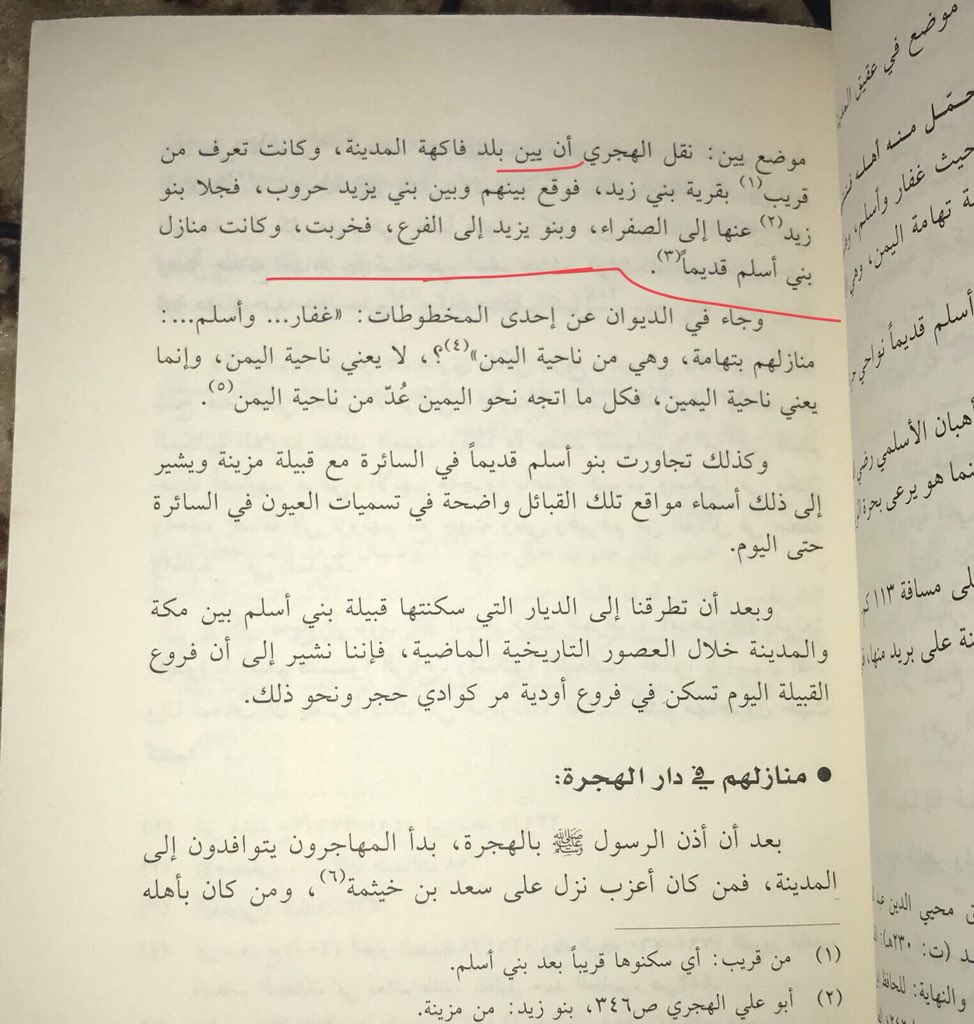 موضع يين: نقل الهجري أن يين بلد فاكهة المدينة، وكانت تعرف من
قريب(١) بقرية بني زيد، فوقع بينهم وبين بني يزيد حروب، فجلا بنو
زيد(٢) عنها إلى الصفراء، وبنو يزيد إلى الفرع، فخربت، وكانت منازل
بني أسلم قديماً(٣).
وجاء في الديوان عن إحدى المخطوطات: «غفار... وأسلم...:
منازلهم بتهامة، وهي من ناحية اليمن»(٤)؟، لا يعني ناحية اليمن، وإنما
يعني ناحية اليمين، فكل ما اتجه نحو اليمين عُدّ من ناحية اليمن(٥).
وكذلك تجاورت بنو أسلم قديماً في السائرة مع قبيلة مزينة ويشير
إلى ذلك أسماء مواقع تلك القبائل واضحة في تسميات العيون في السائرة
حتى اليوم.
وبعد أن تطرقنا إلى الديار التي سكنتها قبيلة بني أسلم بين مكة
والمدينة خلال العصور التاريخية الماضية، فإننا نشير إلى أن فروع
القبيلة اليوم تسكن في فروع أودية مر كوادي حجر ونحو ذلك.
● منازلهم في دار الهجرة:
بعد أن أذن الرسول ﷺ بالهجرة، بدأ المهاجرون يتوافدون إلى
المدينة، فمن كان أعزب نزل على سعد بن خيثمة(٦)، ومن كان بأهله
(١) من قريب: أي سكنوها قريباً بعد بني أسلم.
(٢) أبو علي الهجري ص٣٤٦، بنو زيد: من مزينة.
موضع في عقيق
حمّل منه أهله
حيث غفار وأسلم، وهي
تهامة اليمن، وهي
أسلم قديماً نواحي
أهبان الأسلمي رضي
نما هو يرعى بحرة
لى مسافة ١١٣
على بريد منها،
محيي الدين
(ت: ٢٣٠هـ):
والنهاية: للحافظ